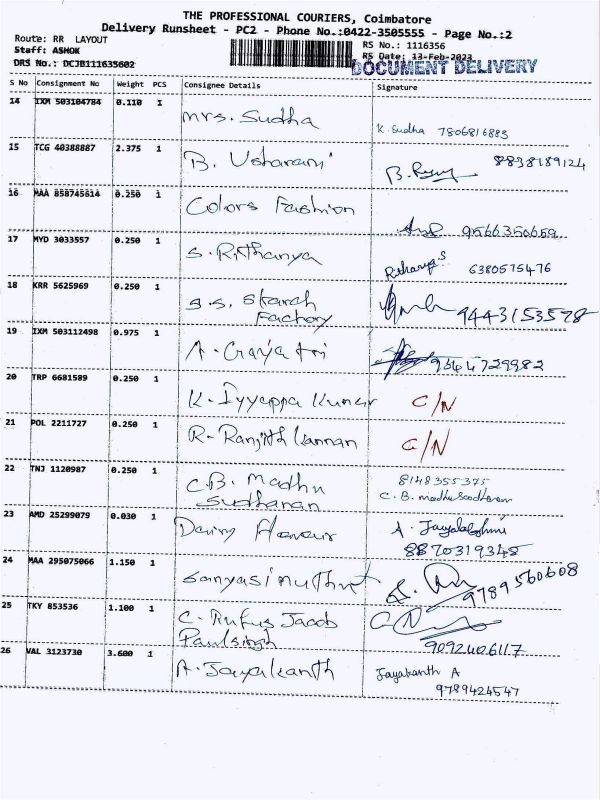 THE PROFESSIONAL COURIERS, Coimbatore
Delivery Runsheet - PC2 - Phone No.:0422-3505555 - Page No.:2
Route: RR LAYOUT
Staff: ASHOK
RS No.: 1116356
RS Date: 13-Feb-2023
DRS No.: DCJB111635602
DOCUMENT DELIVERY
S No Consignment No Weight PCS Consignee Details Signature
14 IXM 503104784 0.110 1 Mrs. Sudha K. Sudha 7806816883
15 TCG 40388887 2.375 1 B. Usharani 8838189124
16 MAA 858745614 0.250 1 Colors Fashion 9566350659
17 MYD 3033557 0.250 1 S. Rithanya Rithanya S 6380515476
18 KRR 5625969 0.250 1 S.S. Starch
Factory 9443153578
19 IXM 503112498 0.975 1 A. Gayatri
20 TRP 6681589 0.250 1 K. Iyyappa Kumar C/N
21 POL 2211727 0.250 1 R. Ranjith Kannan C/N
22 TNJ 1120987 0.250 1 C.B. Madhu 8148355375
Sudharan C. B. Madhu
23 AMD 25299079 0.030 1 Dairy A. Jayalakshmi
8870319345
24 MAA 295075066 1.150 1 9789560608
25 TKY 853536 1.100 1 C. Rufus Jacob
Paulsingh 9092406117
26 VAL 3123730 3.600 1 A. Jayakanth Jayakanth A
9789424547